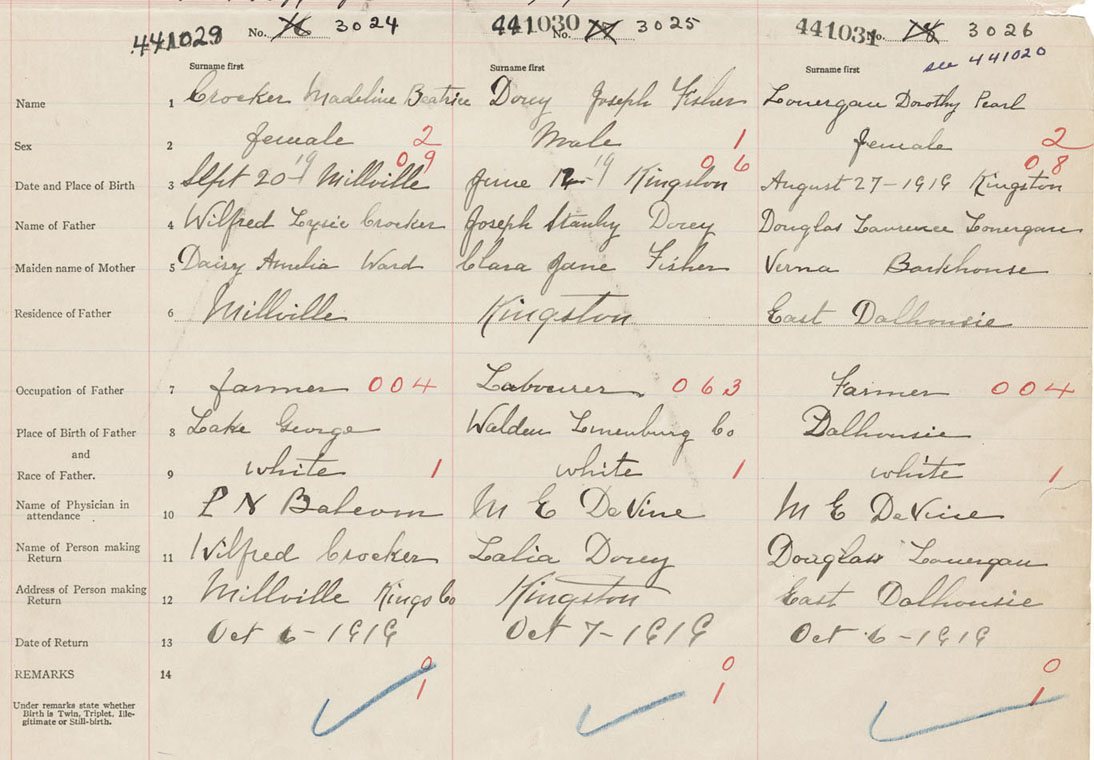 441029 No. 76 3024 441030 No. 77 3025 441031 No. 78 3026
see 441020
Surname first Surname first Surname first
Name 1 Crocker Madeline Beatrice Dorey Joseph Fisher Lonergan Dorothy Pearl
Sex 2 female 2 Male 1 female 2
09 06 08
Date and Place of Birth 3 Sept 20-19 Millville June 12-19 Kingston August 27-1919 Kingston
Name of Father 4 Wilfred Crocker Joseph Stanley Dorey Douglas Lawrence Lonergan
Maiden name of Mother 5 Daisy Amelia Ward Clara Jane Fisher Verna Barkhouse
Residence of Father 6 Millville Kingston East Dalhousie
Occupation of Father 7 farmer 004 Labourer 063 Farmer 004
Place of Birth of Father 8 Lake George Walden Lunenburg Co Dalhousie
and
Race of Father. 9 white 1 white 1 white 1
Name of Physician in
attendance 10 P N Balcom M E DeVine M E DeVine
Name of Person making
Return 11 Wilfred Crocker Lalia Dorey Douglas Lonergan
Address of Person making
Return 12 Millville Kings Co Kingston East Dalhousie
Date of Return 13 Oct 6-1919 Oct 7-1919 Oct 6-1919
REMARKS 14 0 0 0
1 1 1
Under remarks state whether
Birth is Twin, Triplet, Ille-
gitimate or Still-birth.